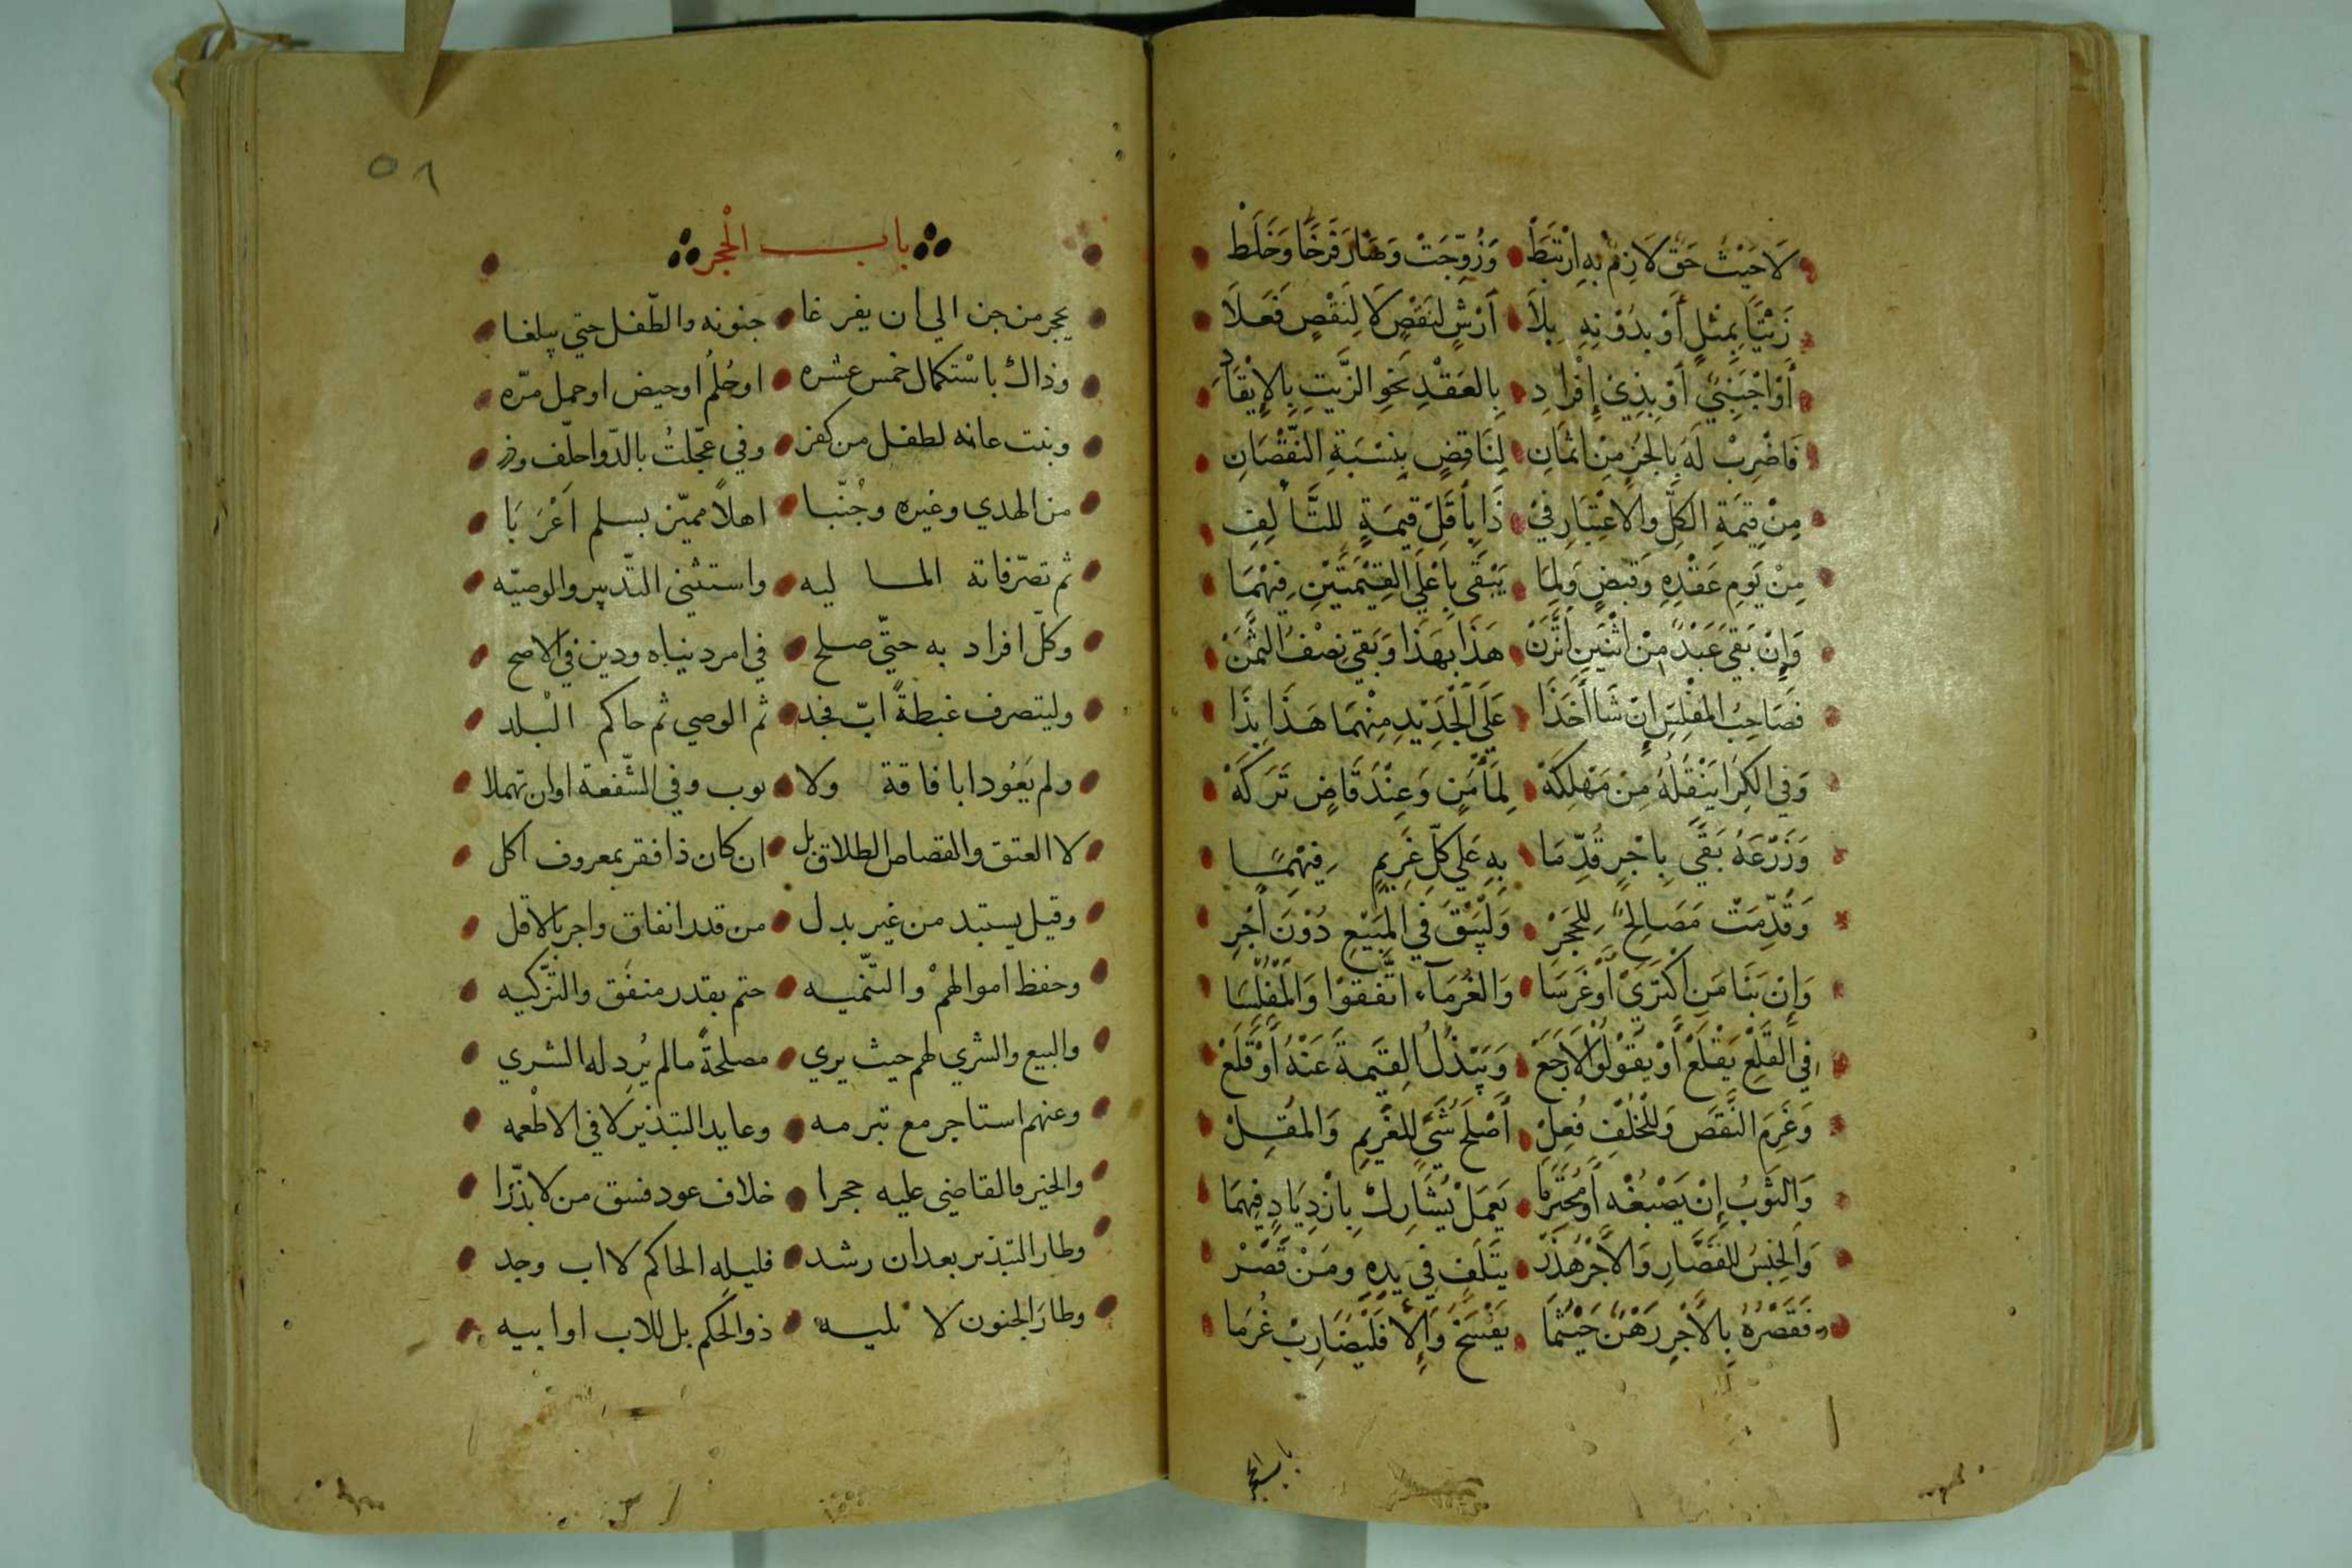 لَا حَيْثُ حَقٌّ لَازِمٌ بِهِ اِرْتَبَطَ وَزُوِّجَتْ وَصَارَ فَرْخًا وَخَلَطْ
زَيْتًا بِمِثْلٍ أَوْ بِدُوْنِهِ بِلَا أَرْشٍ لِنَقْصٍ كَا لِنَقْصٍ فَعَلَا
أَوْ اَجْنَبِيٍّ أَوْ بِذِيْ إِفْرَادِ بِالعَقْدِ نَحْوِ الزَّيْتِ بِالإِيْقَادِ
فَاضْرِبْ لَهُ بِالجُزْءِ مِنْ اثْمَانِ لِنَاقِصٍ بِنِسْبَةِ النُّقْصَانِ
مِنْ قِيْمَةِ الكُلِّ وَالاعْتِبَارِ فِيْ ذَا بِأَقَلِّ قِيمَةٍ لِلتَّالِفِ
مِنْ يَوْمِ عَقْدِهِ وَقَبْضٍ وَلِمَا يَبْقَى بِاعْلَى القِيْمَتَيْنِ فِيْهِمَا
وَإِنْ بَقِيْ عَبْدٌ مِنْ اثْنَيْنِ اتَّزَنْ هَذَا بِهَذَا وَبَقِيْ نِصْفُ الثَّمَنْ
فَصَاحِبُ المُفْلِسِ إِنْ شَا أَخَذَا عَلَى الْجَدِيْدِ مِنْهُمَا هَذَا بِذَا
وَفِي الكِرَا يَنْقُلُهُ مِنْ مَهْلَكَهْ لِمَأْمَنٍ وَعِنْدَ قَاضٍ تَرَكَهْ
وَزَرْعَهُ بَقَّى بِاجْرٍ قُدِّمَا بِهِ عَلَى كُلِّ غَرِيْمٍ فِيْهِمَا
وَقُدِّمَتْ مَصَالِحُ لِلْحَجْرِ وَلْيَبْقَ فِي المَبِيْعِ دُوْنَ أَجْرِ
وَإِنْ بَنَا مَنِ اكْتَرَى أَوْ غَرَسَا وَالغُرَمَاء اتَّفَقُوْا وَالمُفْلِسَا
فِي القَلْعِ يَقْلَعْ أَوْ يَقُوْلُوْا لَا رَجَعْ وَيَبْذُلُ القِيْمَةَ عَنْهُ أَوْ قَلَعْ
وَغَرِمَ النَّقْصَ وَلِلْخُلْفِ فُعِلْ أَصْلَحُ شَيْءٍ لِلْغَرِيْمِ وَالمُقِلْ
وَالثَّوْبُ إِنْ يَصْبُغْهُ أَوْ مُحْتَرَمَا يَعْمَلْ يُشَارِكْ بِازْدِيَادٍ فِيهِمَا
وَالحَبْسُ لِلْقَصَّارِ وَالأَجْرُ هَدَرْ يَتْلَفُ فِيْ يَدِهِ وَمَنْ قَصَّرْ
فَقَصْرُهُ بِالأَجْرِ رَهْنٌ حَيْثُمَا يَفْسَخُ وَإِلَّا فَلْيُضَارِبْ غُرَمَا
باب الحجر
٥٨
باب الْحَجر
يحجر من جن الي ان يفرغا جنونه والطّفل حتي يبلغا
وذاك باسْتكمال خمس عشره او حُلُم او حيض او حمل مرّه
وبنت عانه لطفل من كفر وفي عجّلتُ بالدّوا حلّف وذر
من الهدي وغيره وجُنّبا اهلاً مميّز بسلم اَعْرَبَا
ثم تصرّفاته الماليه واستثني التّدبير والوصيّه
وكلّ افراد به حتّي صلح في امر دنياه ودين في الاصح
وليتصرف غبطةً ابّ فجد ثم الوصي ثم حاكم الْبلد
ولم يَعُودا بافاقة ولا بوب وفي الشّفعة اوان تهملا
لا العتق والقصاص الطلاق بل ان كان ذا فقر بمعروف اكل
وقيل يستبد من غير بدل من قدر انفاق واجر بالاقل
وحفظ اموالهمْ والتّنميه حتم بقدر منفَق والتّزكيه
والبيع والشري لهم حيث يري مصلحةً مالم يُرِد له الشري
وعنهم استاجر مع تبرمه وعايد التبذير لا في الاطْعمه
والخير فالقاضي عليه حجرا خلاف عود فسق من لا بذّرا
وطار التبذير بعد ان رشد فليلِه الحاكم لا اب وجد
وطارَ الجنون لا يليه ذو الحكم بل للاب او ابيه